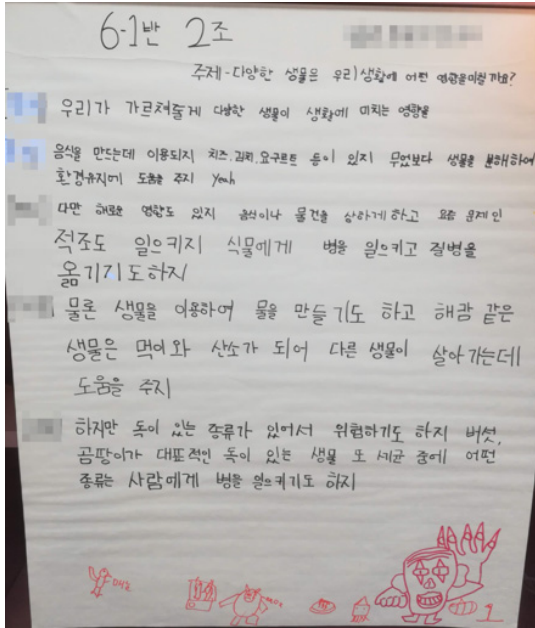 6-1반 2조
주제-다양한 생물은 우리생활에 어떤 영향을미칠까요?
우리가 가르쳐줄게 다양한 생물이 생활에 미치는 영향을
음식을 만드는데 이용되지 치즈.김치.요구르트 등이 있지 무엇보다 생물을 분해하여
환경유지에 도움을 주지 Yeah
다만 해로운 영향도 있지 음식이나 물건을 상하게하고 요즘 문제인
적조도 일으키지 식물에게 병을 일으키고 질병을
옮기기도하지
물론 생물을 이용하여 물을 만들기도 하고 해캄 같은
생물은 먹이와 산소가 되어 다른 생물이 살아가는데
도움을 주지
하지만 독이 있는 종류가 있어서 위험하기도 하지 버섯,
곰팡이가 대표적인 독이 있는 생물 또 세균 중에 어떤
종류는 사람에게 병을 일으키기도 하지
1